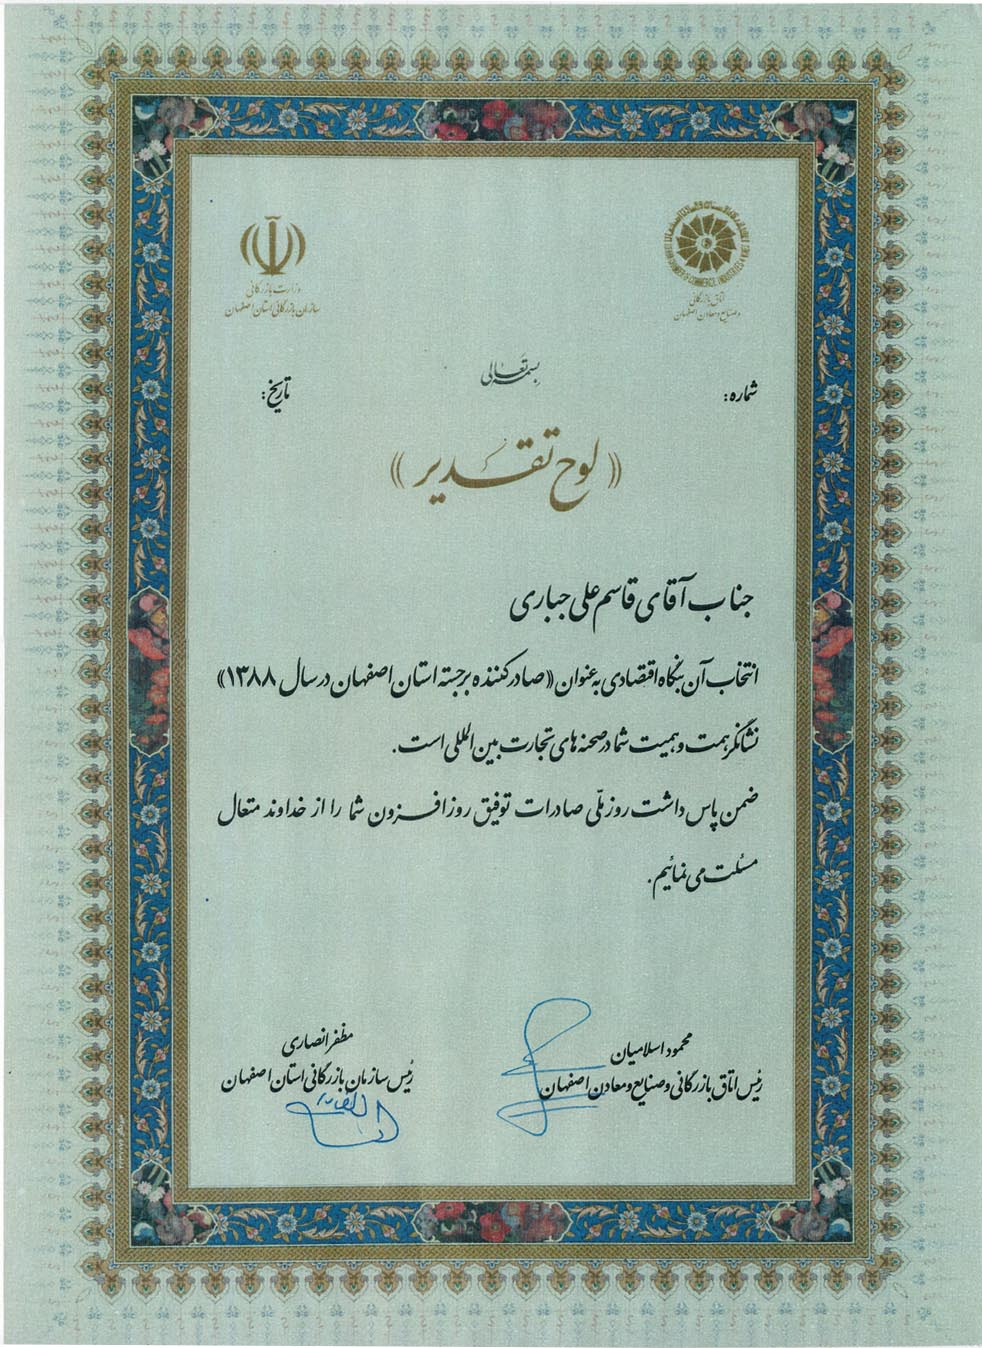 اتاق بازرگانی
و صنایع و معادن اصفهان
وزارت بازرگانی
سازمان بازرگانی استان اصفهان
بسمه تعالی
شماره:
تاریخ:
«لوح تقدیر»
جناب آقای قاسم علی جباری
انتخاب آن بنگاه اقتصادی به عنوان «صادر کننده برجسته استان اصفهان در سال ۱۳۸۸»
نشانگر همت و حمیت شما در صحنه های تجارت بین المللی است.
ضمن پاس داشت روز ملّی صادرات توفیق روز افزون شما را از خداوند متعال
مسئلت می نمائیم.
محمود اسلامیان
رئیس اتاق بازرگانی و صنایع و معادن اصفهان
مظفر انصاری
رئیس سازمان بازرگانی استان اصفهان